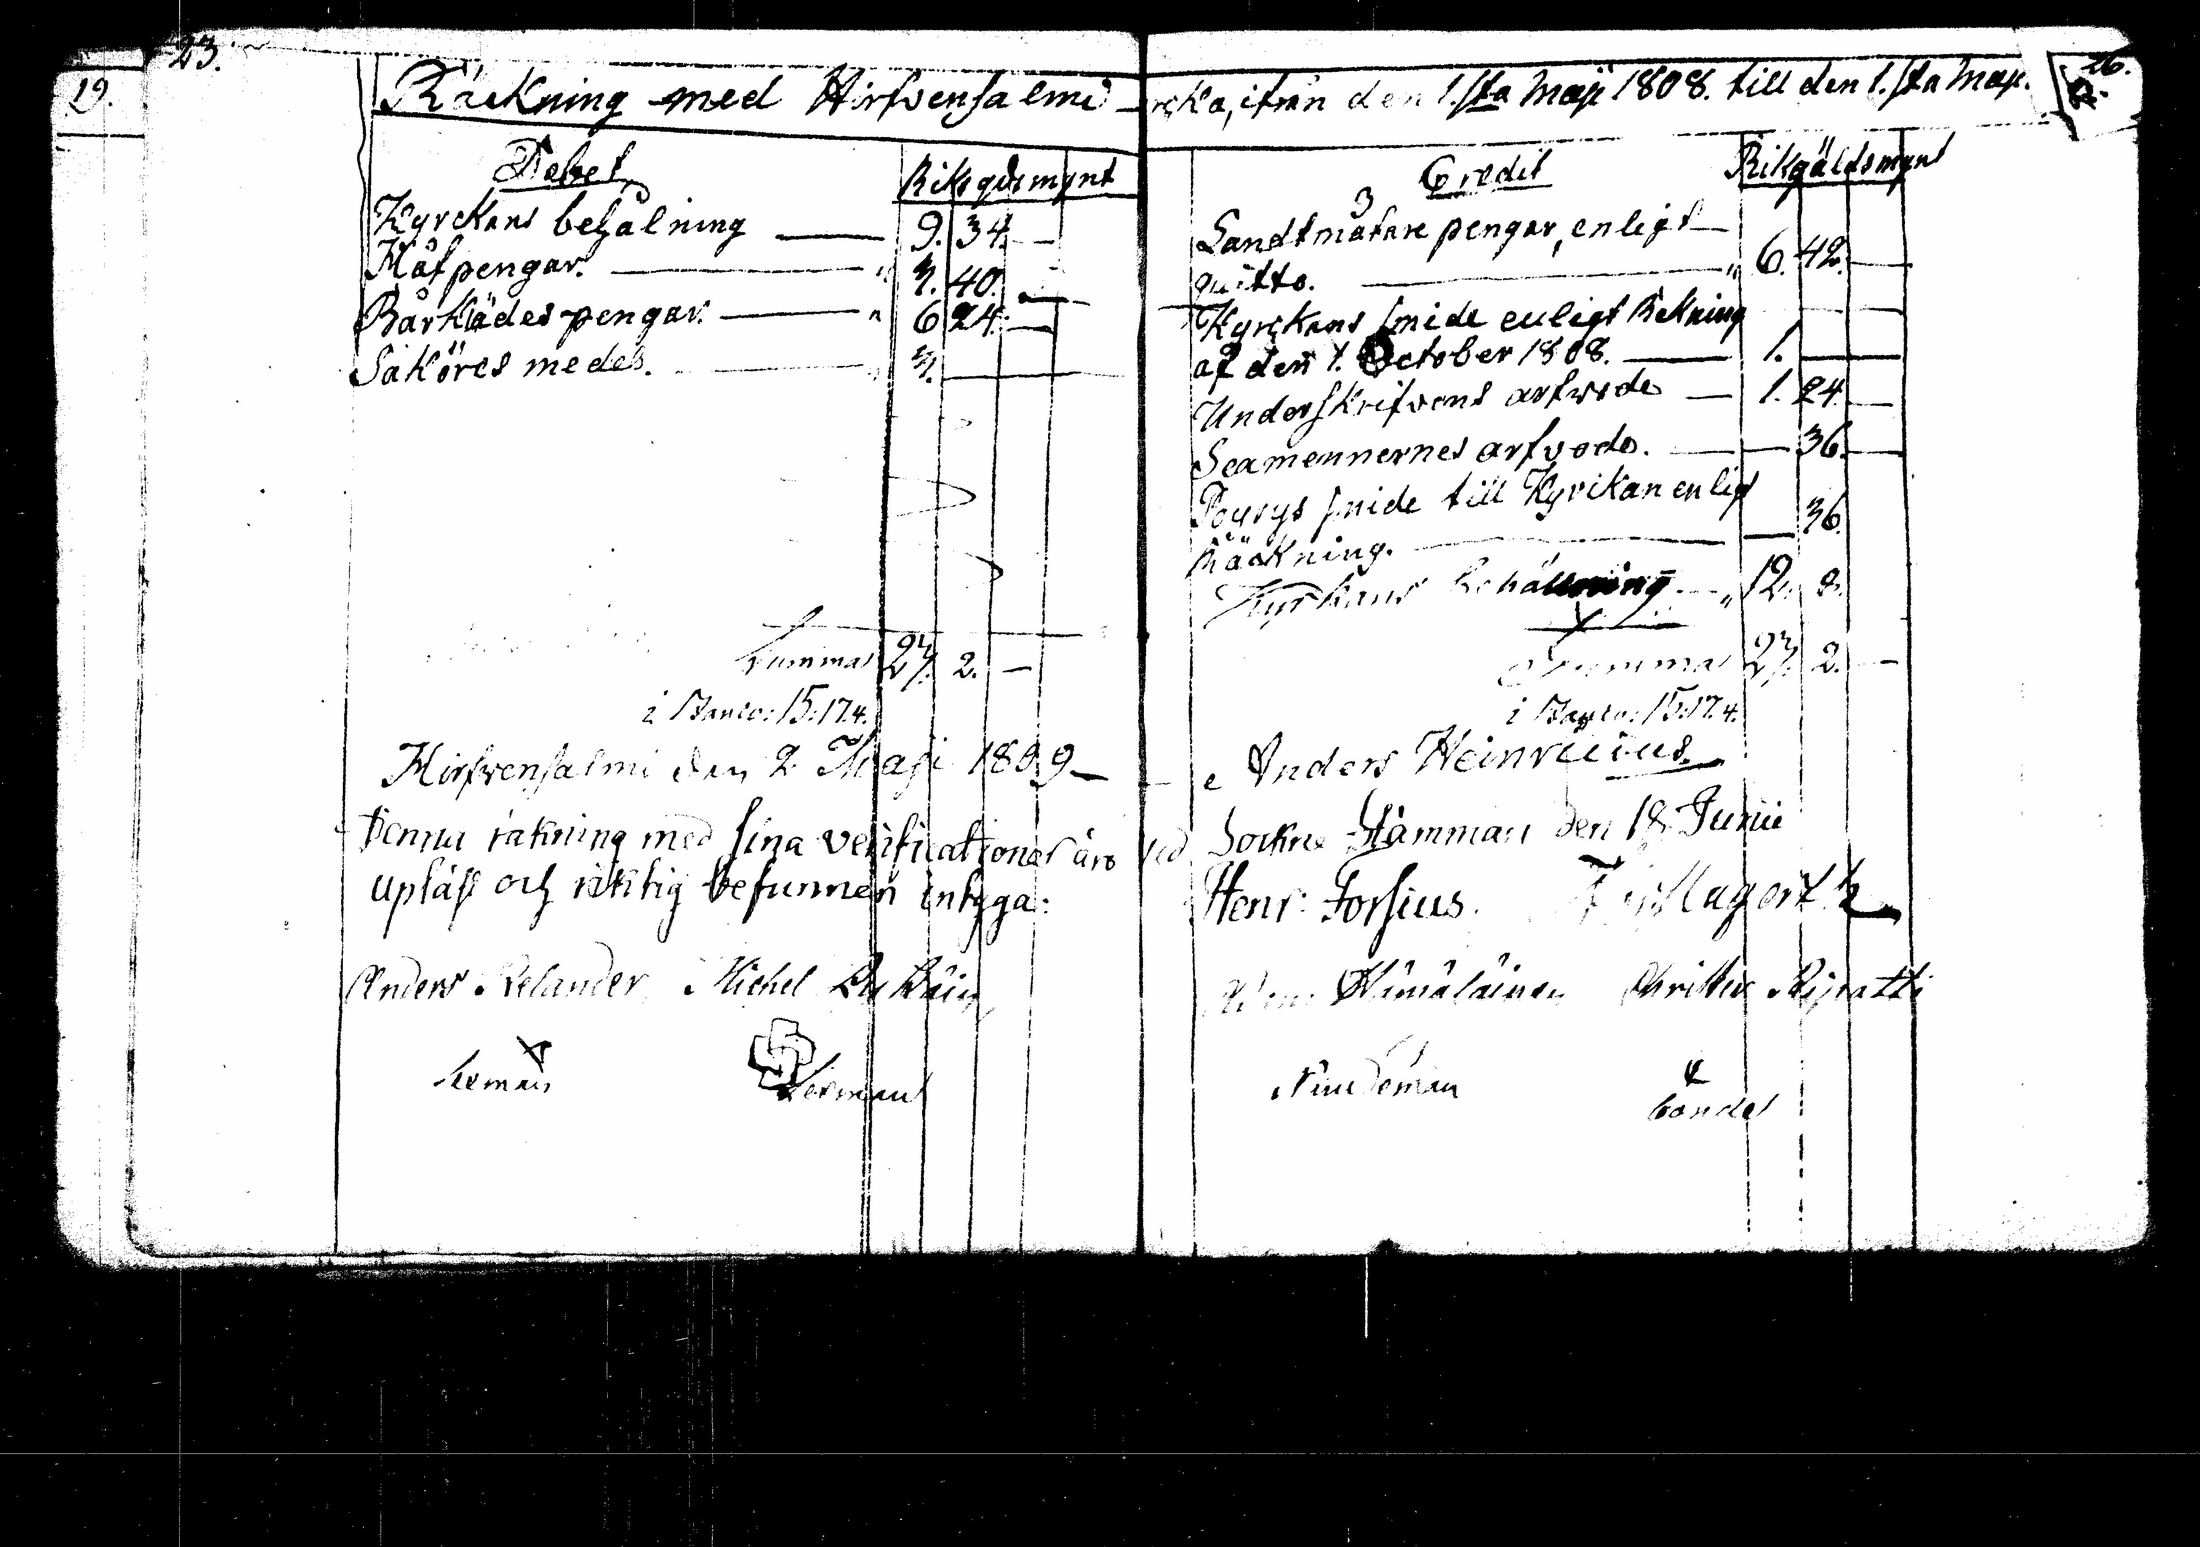 23.
29.
26.
Räckning med Hirfvensalmi rcka, ifrån den 1.sta Maji 1808. till den 1.sta Maji.
Debet Riksgds mynt
Kyrckans behålning 9. 34. —
Håfpengar. " 7. 40.
Bårklädes pengar. " 6 24. —
Saköres medel. " 7. —
Summa 27. 2. —
i Banco: 15: 17. 4.
Hirfvensalmi den 2 Maji 1809
Denna räkning med sina verificationer äro
upläst och riktig befunnen intyga:
Anders Relander Michel
Sexman Sexman
Credit Rikgäldsmynt
Landtmätare pengar, enligt
quitto. " 6. 42. —
Kyrckans smide enligt Räkning
af den 1. October 1808. 1. —
Underskrifvens arfvode 1. 24. —
Sexmennernes arfvode. — 36. —
Pöyrys smide till Kyrckan enligt
Räckning. — 36.
Kyrkans behållning " 12. 8.
Summa 27. 2. —
i Banco: 15: 17. 4.
Anders Heinricius.
Sockne Stämman den 18 Junii
Henr: Forsius.
Hämäläinen Christer Ripatti
Nämdeman bonde